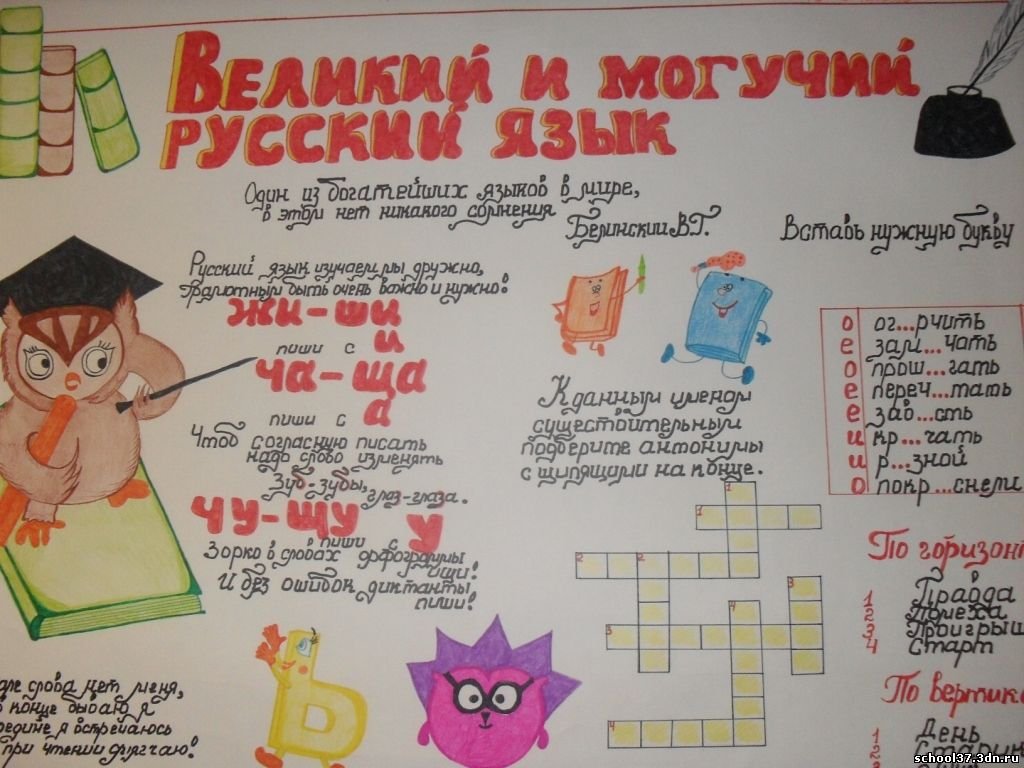 Великий и могучий
русский язык
Один из богатейших языков в мире,
в этом нет никакого сомнения
Белинский В.Г.
Русский язык изучаем мы дружно,
Грамотным быть очень важно и нужно!
жи-ши
пиши с и
ча-ща
пиши с а
Чтоб согласную писать
надо слово изменять
Зуб-зубы, глаз-глаза.
чу-щу
пиши с у
Зорко в словах орфограммы
ищи!
И без ошибок диктанты
пиши!
К данным именам
существительным
подберите антонимы
с шипящими на конце.
1
1
2 2
3
4
3
4
Вставь нужную букву
о ог...рчить
е зам...чать
о прош...гать
е переч...тать
е зав...сть
и кр...чать
и р...зной
о покр...снели
По горизонт
1 Правда
2 Помеха
3 Проигрыш
4 Старт
По вертика
1 День
2 Старик
але слова нет меня,
в конце бываю я
редине я встречаюсь
при чтении смягчаю!
ь
school37.3dn.ru